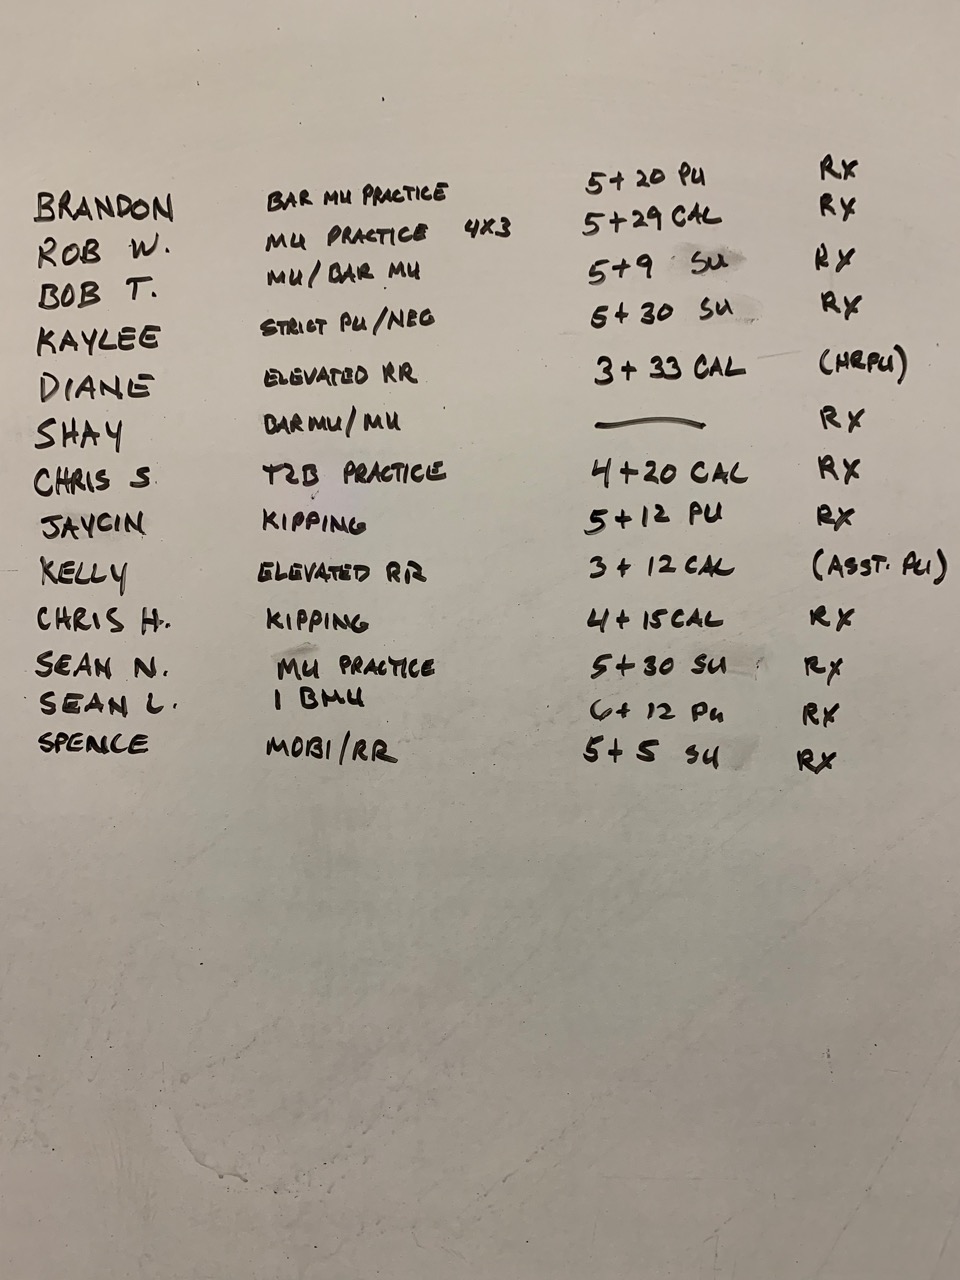 BRANDON BAR MU PRACTICE 5+20 PU RX
ROB W. MU PRACTICE 4X3 5+29 CAL RX
BOB T. MU/BAR MU 5+9 SU RX
KAYLEE STRICT PU/NEG 5+30 SU RX
DIANE ELEVATED RR 3+33 CAL (HRPU)
SHAY BAR MU/MU — RX
CHRIS S. T2B PRACTICE 4+20 CAL RX
JAYCIN KIPPING 5+12 PU RX
KELLY ELEVATED RR 3+12 CAL (ASST. PU)
CHRIS H. KIPPING 4+15 CAL RX
SEAN N. MU PRACTICE 5+30 SU RX
SEAN L. 1 BMU 6+12 PU RX
SPENCE MOBI/RR 5+5 SU RX